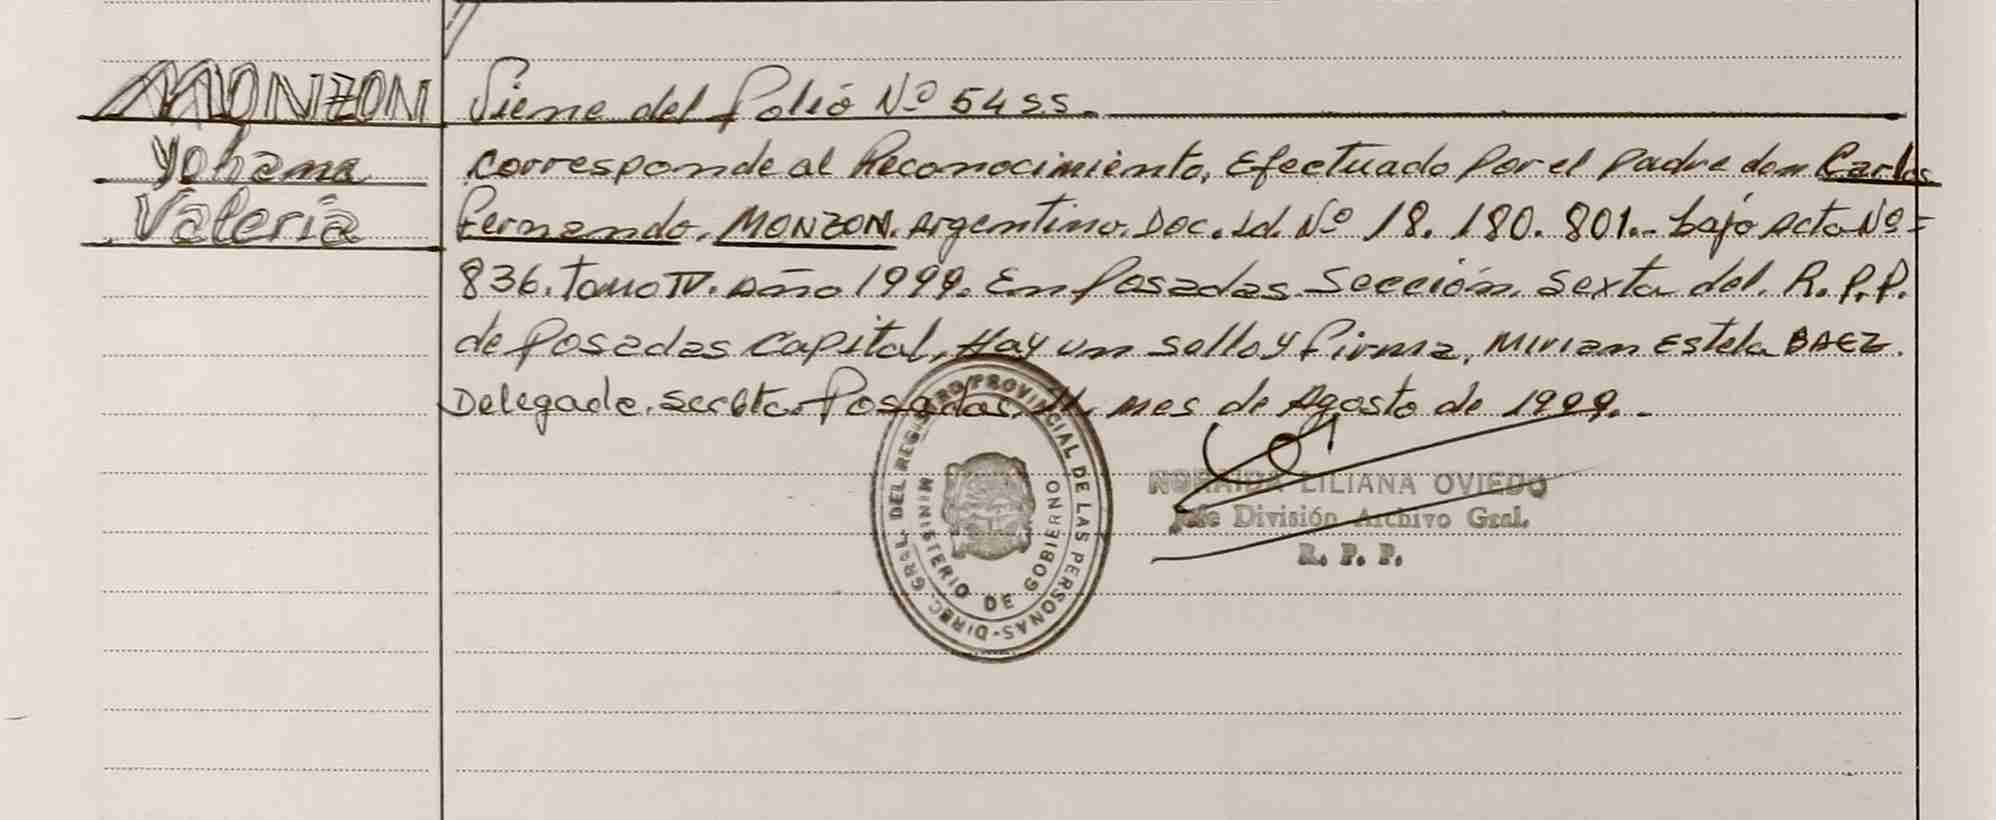 MONZON
Yohana
Valeria
Viene del folio Nº 54 s.s.
Corresponde al Reconocimiento, Efectuado Por el Padre don Carlos
Fernando. MONZON. Argentino. Doc. Id. Nº 18.180.801.- bajo Acta Nº=
836. Tomo IV. Año 1999. En Posadas. Sección. Sexta del. R.P.P.
de Posadas Capital, Hay un sello y firma, Mirian Estela BAEZ.
Delegada. Posadas, mes de Agosto de 1999.-
DIREC. GRAL. DEL REGISTRO PROVINCIAL DE LAS PERSONAS-
MINISTERIO DE GOBIERNO
NORAIDA LILIANA OVIEDO
Jefe División Archivo Gral.
R. P. P.